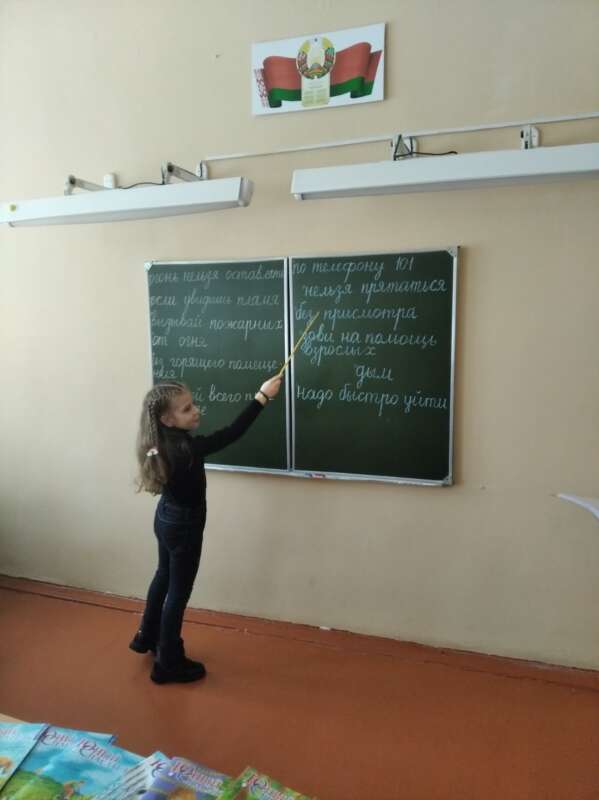 огонь нельзя оставлять
если увидишь пламя
вызывай пожарных
от огня
из горящего помеще-
ния
всего
по телефону 101
нельзя прятаться
без присмотра
зови на помощь
взрослых
дым
надо быстро уйти